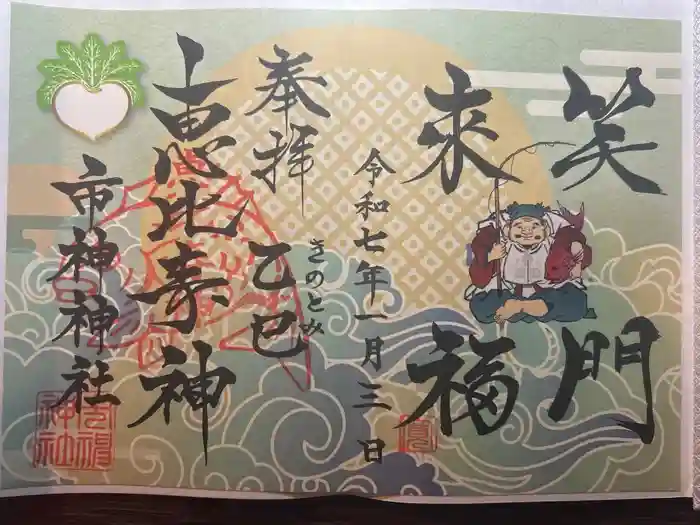 笑門
来福
令和七年一月三日
奉拝
乙巳
きのとみ
恵比寿神
市神神社